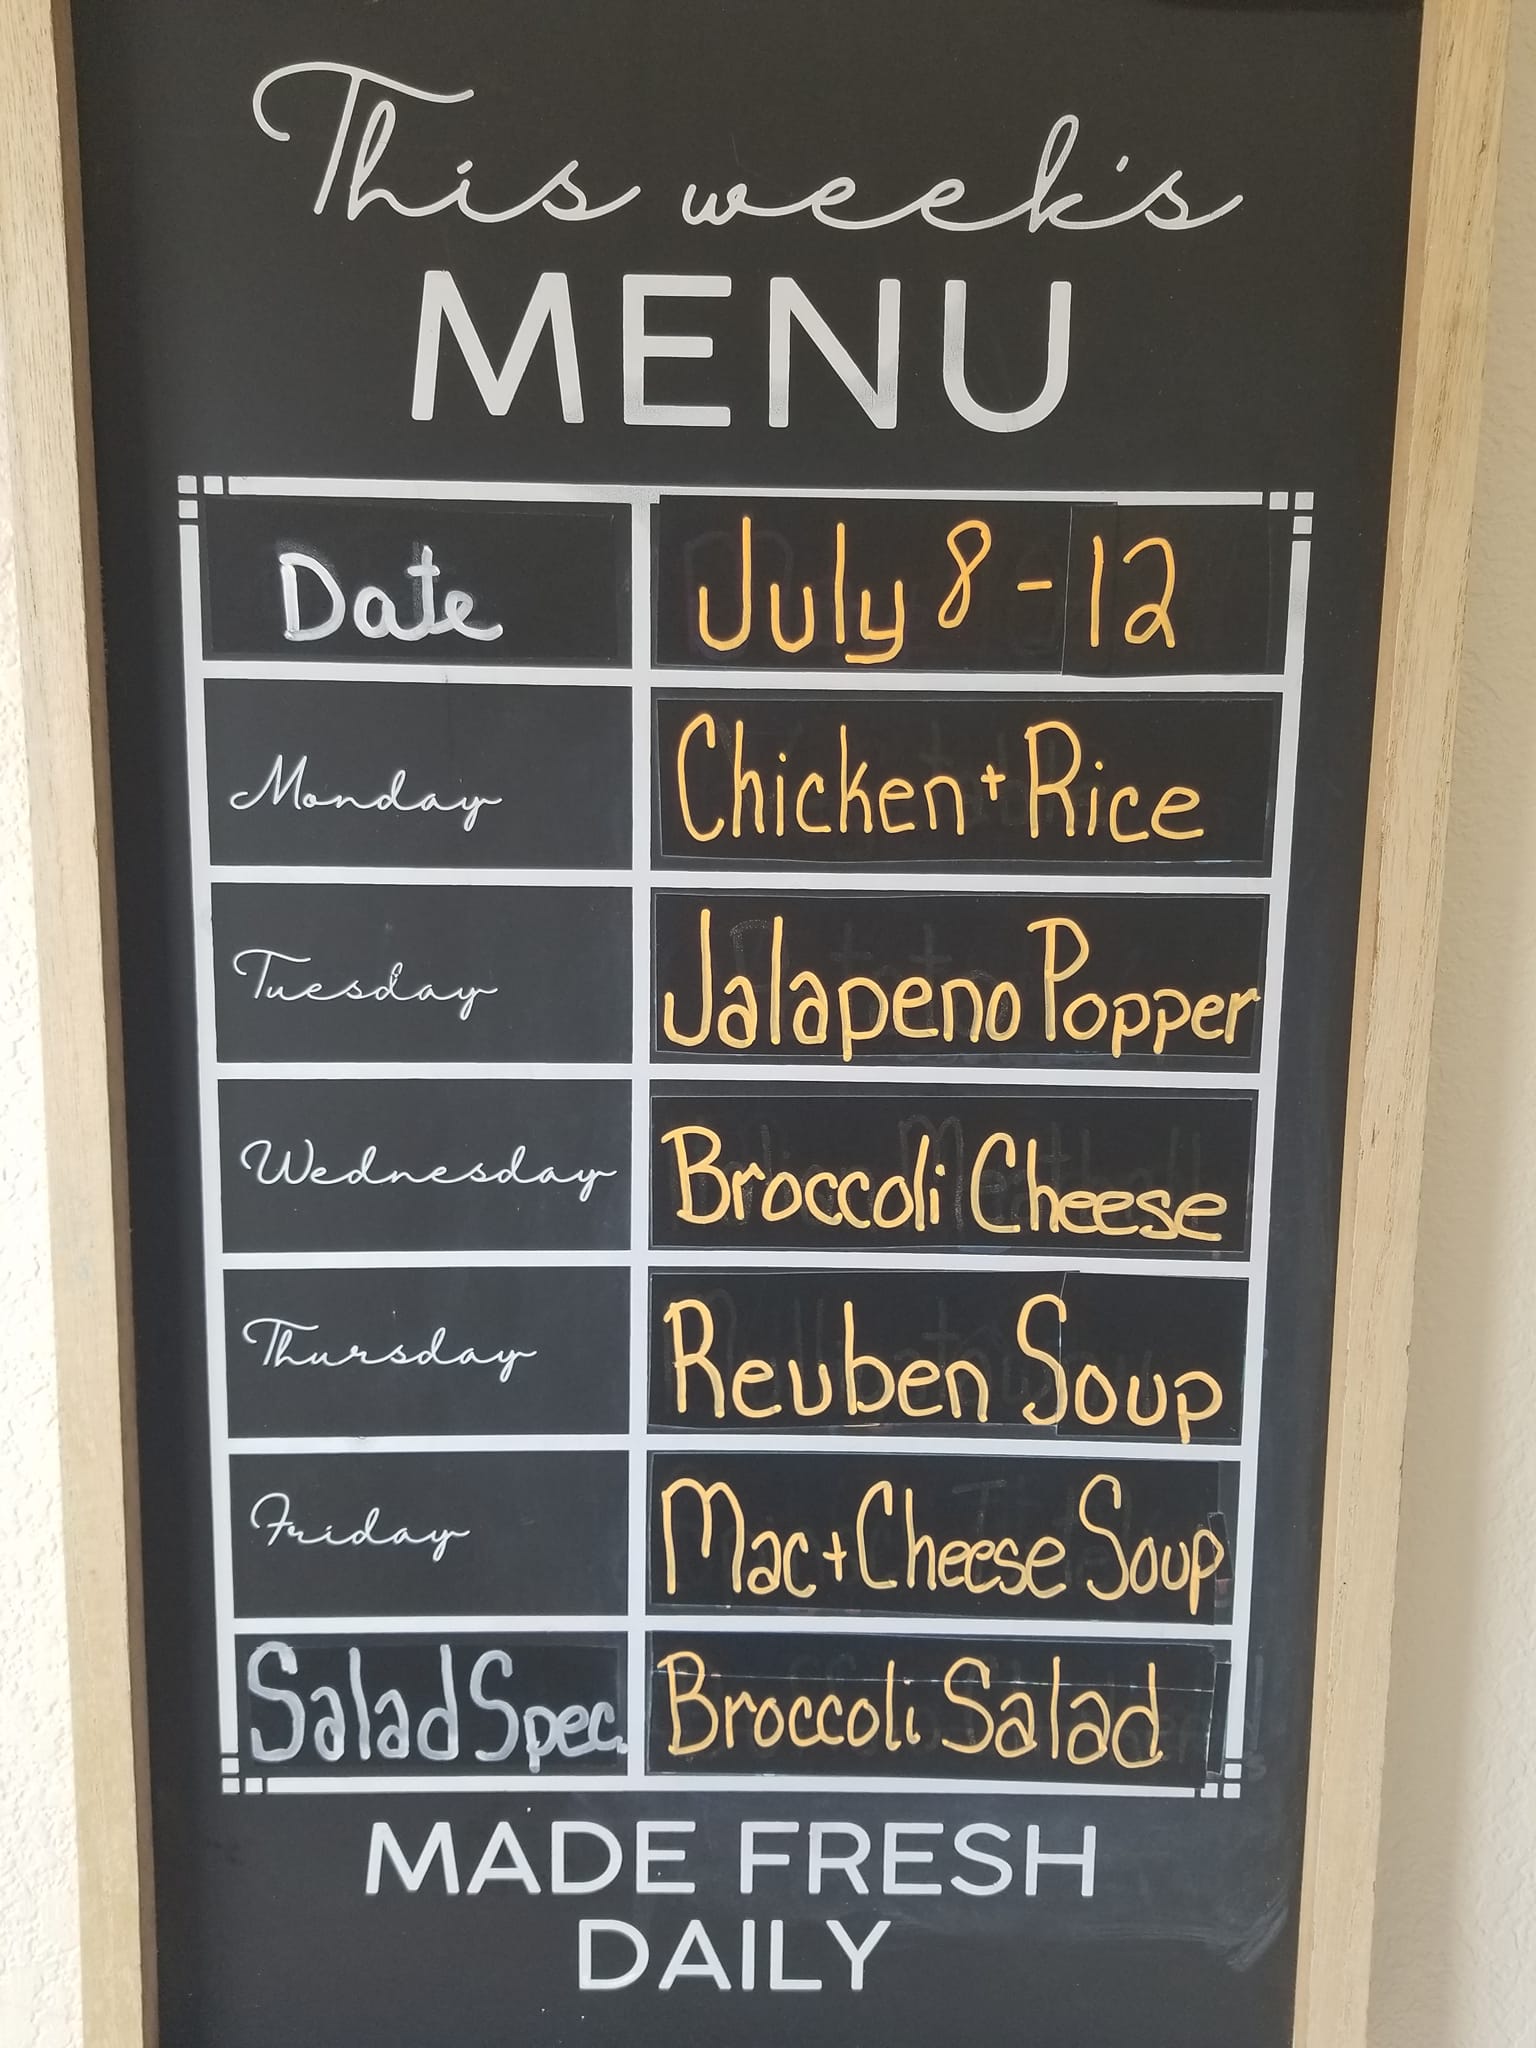 This week's
MENU
Date July 8 - 12
Monday Chicken + Rice
Tuesday Jalapeno Popper
Wednesday Broccoli Cheese
Thursday Reuben Soup
Friday Mac + Cheese Soup
Salad Spec. Broccoli Salad
MADE FRESH
DAILY